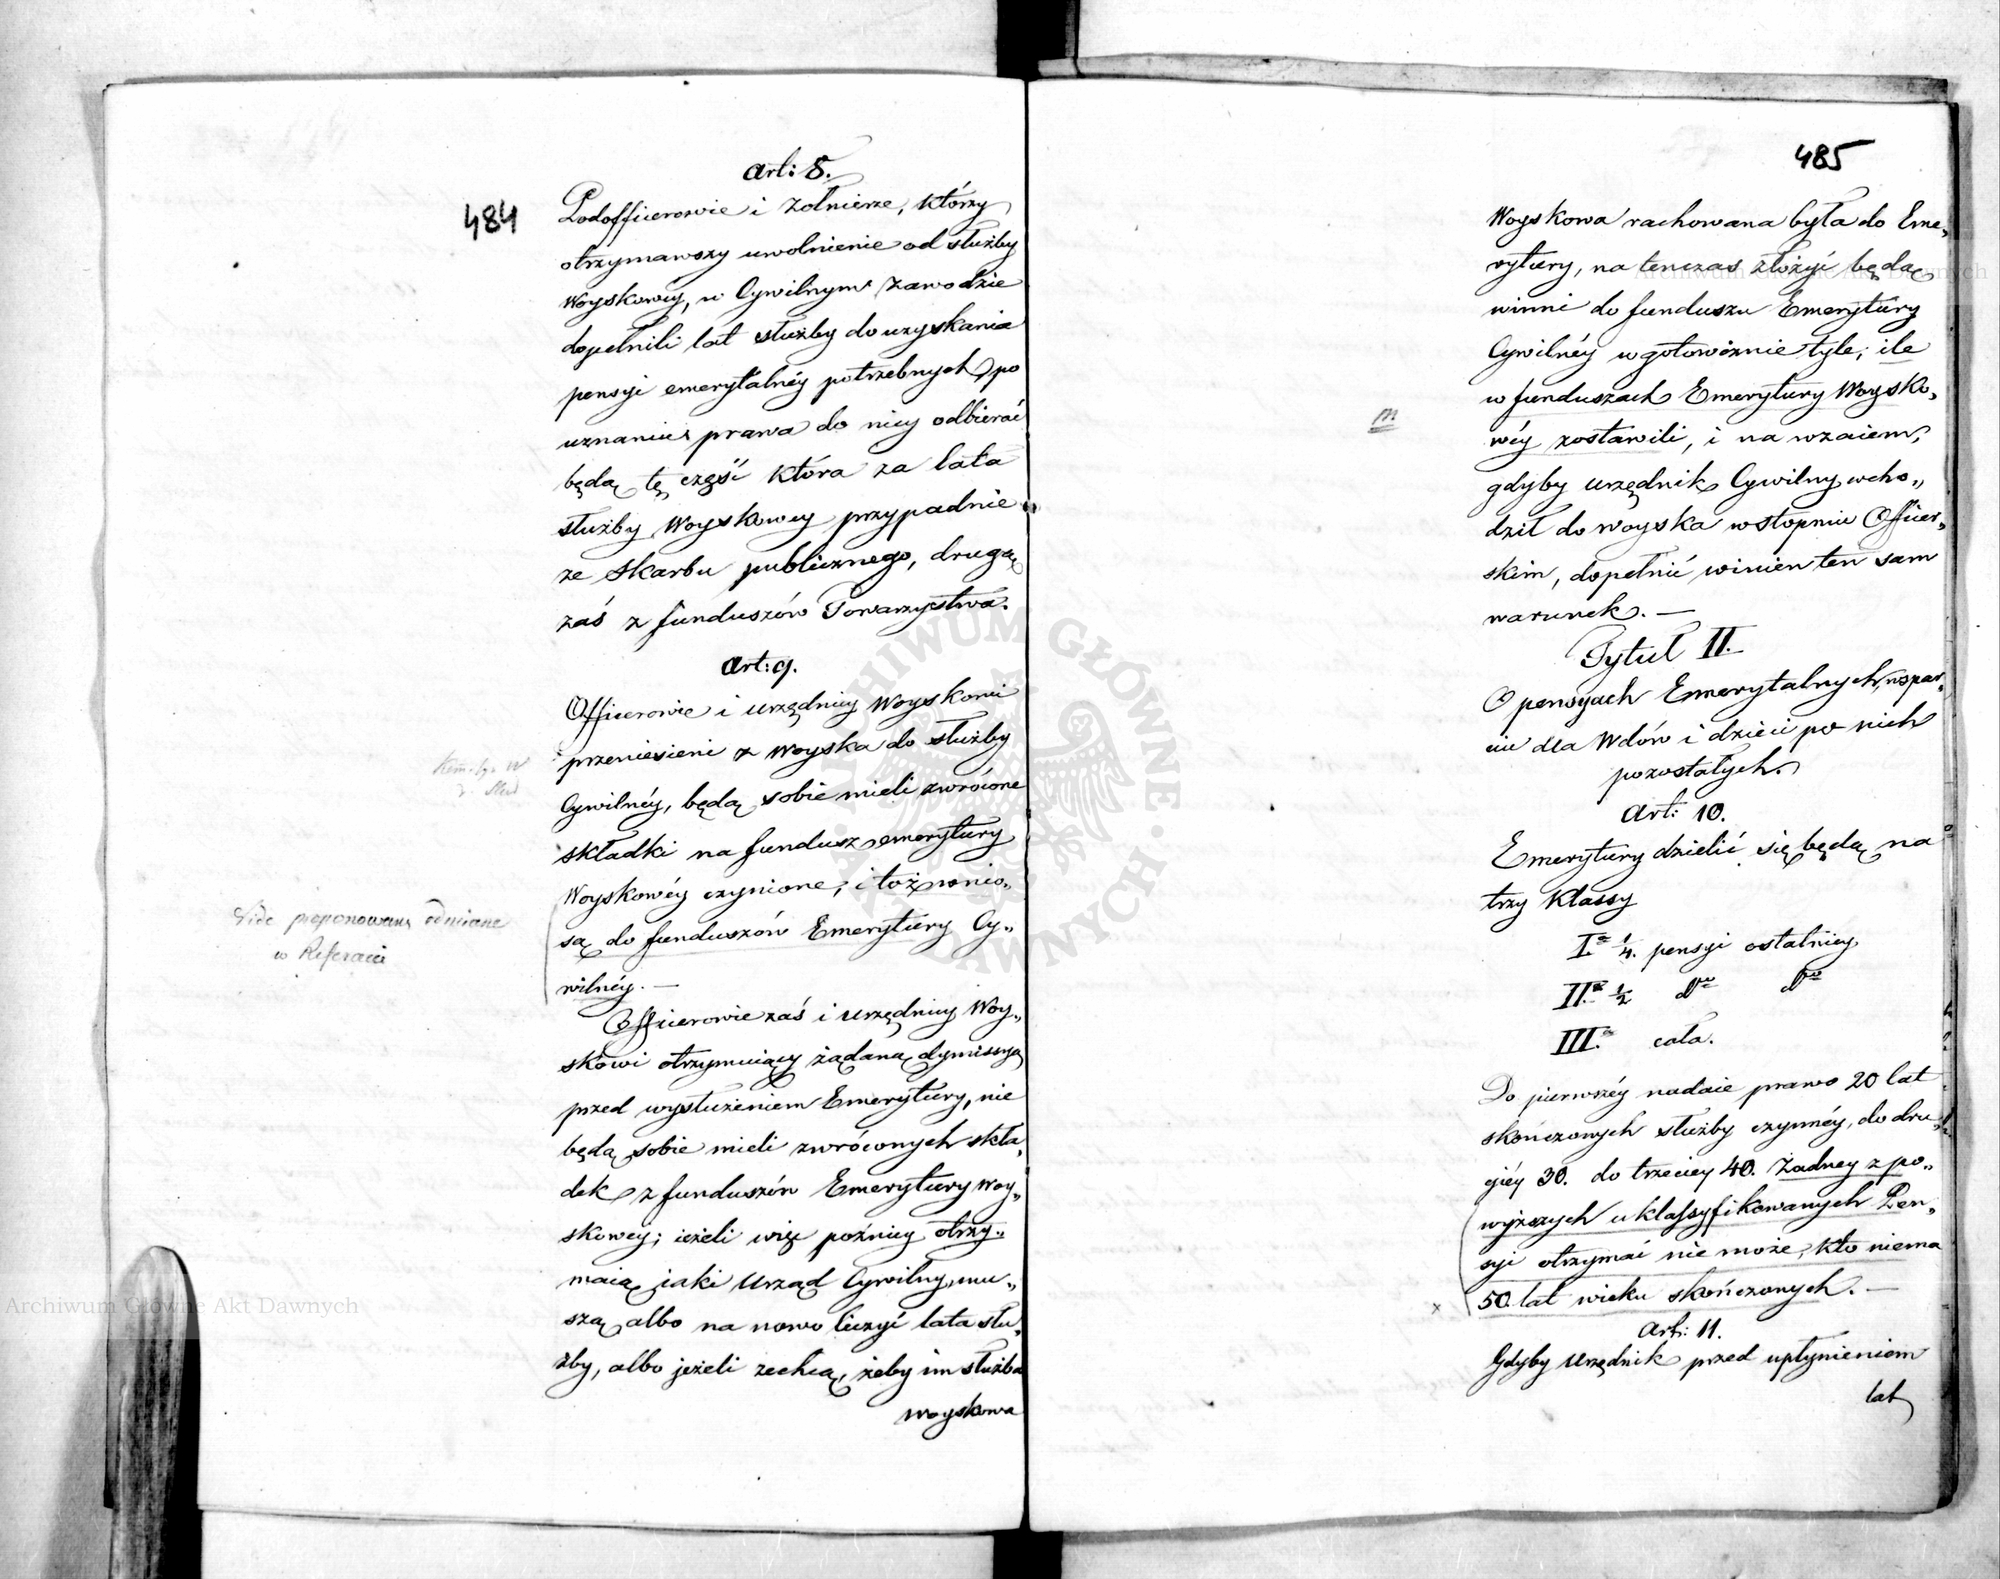 484
Art: 8.
Podofficerowie i Żołnierze, którzy
otrzymawszy uwolnienie od służby
Woyskowey, w Cywilnym zawodzie
dopełnili lat służby do uzyskania
pensyi emerytalnéy potrzebnych, po
uznaniu prawa do niey odbierać
będą tę część która za lata
służby Woyskowey przypadnie
ze Skarbu publicznego, drugą
zaś z funduszów Towarzystwa.
Art: 9.
Officerowie i urzędnicy Woyskowi
przeniesieni z Woyska do służby
Cywilnéy, będą sobie mieli zwrócone
składki na fundusz emerytury
Woyskowéy czynione, i też wnio„
są do funduszów Emerytury Cy„
wilnéy. —
Vide proponowaną odmianę
w Referacie
Officerowie zaś i urzędnicy Woy„
skowi otrzymuiący żądaną dymissyą
przed wysłużeniem Emerytury, nie
będą sobie mieli zwróconych skła„
dek z funduszów Emerytury Woy„
skowey; ieżeli więc poźniey otrzy„
maią iaki Urząd Cywilny, mu„
szą albo na nowo liczyć lata słu„
żby, albo jeżeli zechcą, żeby im służba
woyskowa
485
Woyskowa rachowana była do Eme„
rytury, na tenczas złożyć będą
winni do funduszu Emerytury
Cywilnéy w gotowiźnie tyle, ile
w funduszach Emerytury Woysko„
wéy zostawili, i na wzaiem,
gdyby urzędnik Cywilny wcho„
dził do woyska w stopniu Officer„
skim, dopełnić winien ten sam
warunek. —
Tytuł II.
O pensyach Emerytalnych, wspar„
ciu dla Wdów i dzieci po nich
pozostałych.
Art: 10.
Emerytury dzielić się będą na
trzy Klassy
I.a 1/4. pensyi ostatniey
II.a 1/2 dto dto
III.a cała.
Do pierwszéy nadaie prawo 20 lat
skończonych służby czynnéy, do dru„
giéy 30. do trzeciey 40. Żadney z po„
wyższych uklassyfikowanych Pen„
syi otrzymać nie może, kto niema
50 lat wieku skończonych. —
x
Art: 11.
Gdyby Urzędnik przed upłynieniem
lat
Archiwum Główne Akt Dawnych